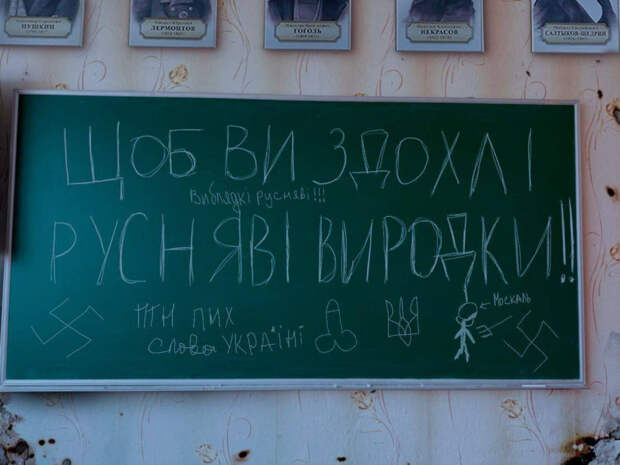 ПУШКИН
ЛЕРМОНТОВ
ГОГОЛЬ
НЕКРАСОВ
САЛТЫКОВ-ЩЕДРИН
ЩОБ ВИ ЗДОХЛІ
Виблядкі русняві!!!
РУСНЯВІ ВИРОДКИ!!
МОСКАЛЬ
ПТН ПИХ
слава УКРАїНІ